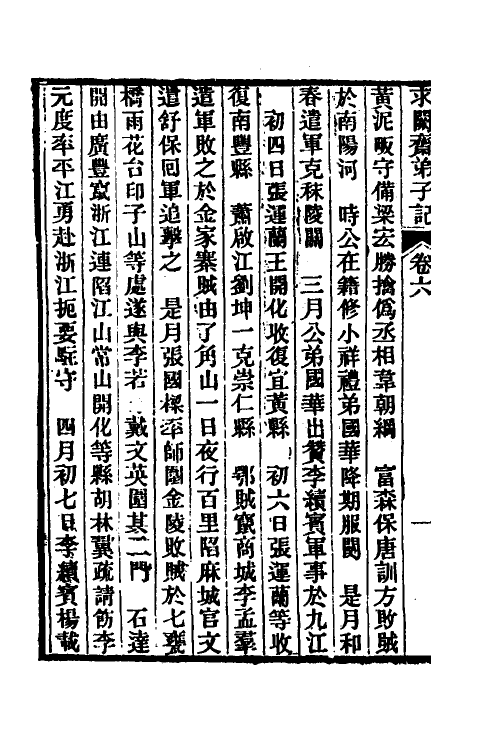 求闕齋弟子記 卷六 一
黃泥畈守備梁宏勝擒僞丞相韋朝綱 富森保唐訓方敗賊
於南陽河 時公在籍修小祥禮弟國華降期服闋 是月和
春遣軍克秣陵關 三月公弟國華出贊李續賓軍事於九江
初四日張運蘭王開化收復宜黃縣 初六日張運蘭等收
復南豐縣 蕭啟江劉坤一克崇仁縣 鄂賊竄商城李孟羣
遣軍敗之於金家寨賊由了角山一日夜行百里陷麻城官文
遣舒保回軍追擊之 是月張國樑率師圍金陵敗賊於七甕
橋雨花台印子山等處遂與李若 戴文英圍其二門 石達
開由廣豐竄浙江連陷江山常山開化等縣胡林翼疏請飭李
元度率平江勇赴浙江扼要駐守 四月初七日李續賓楊載